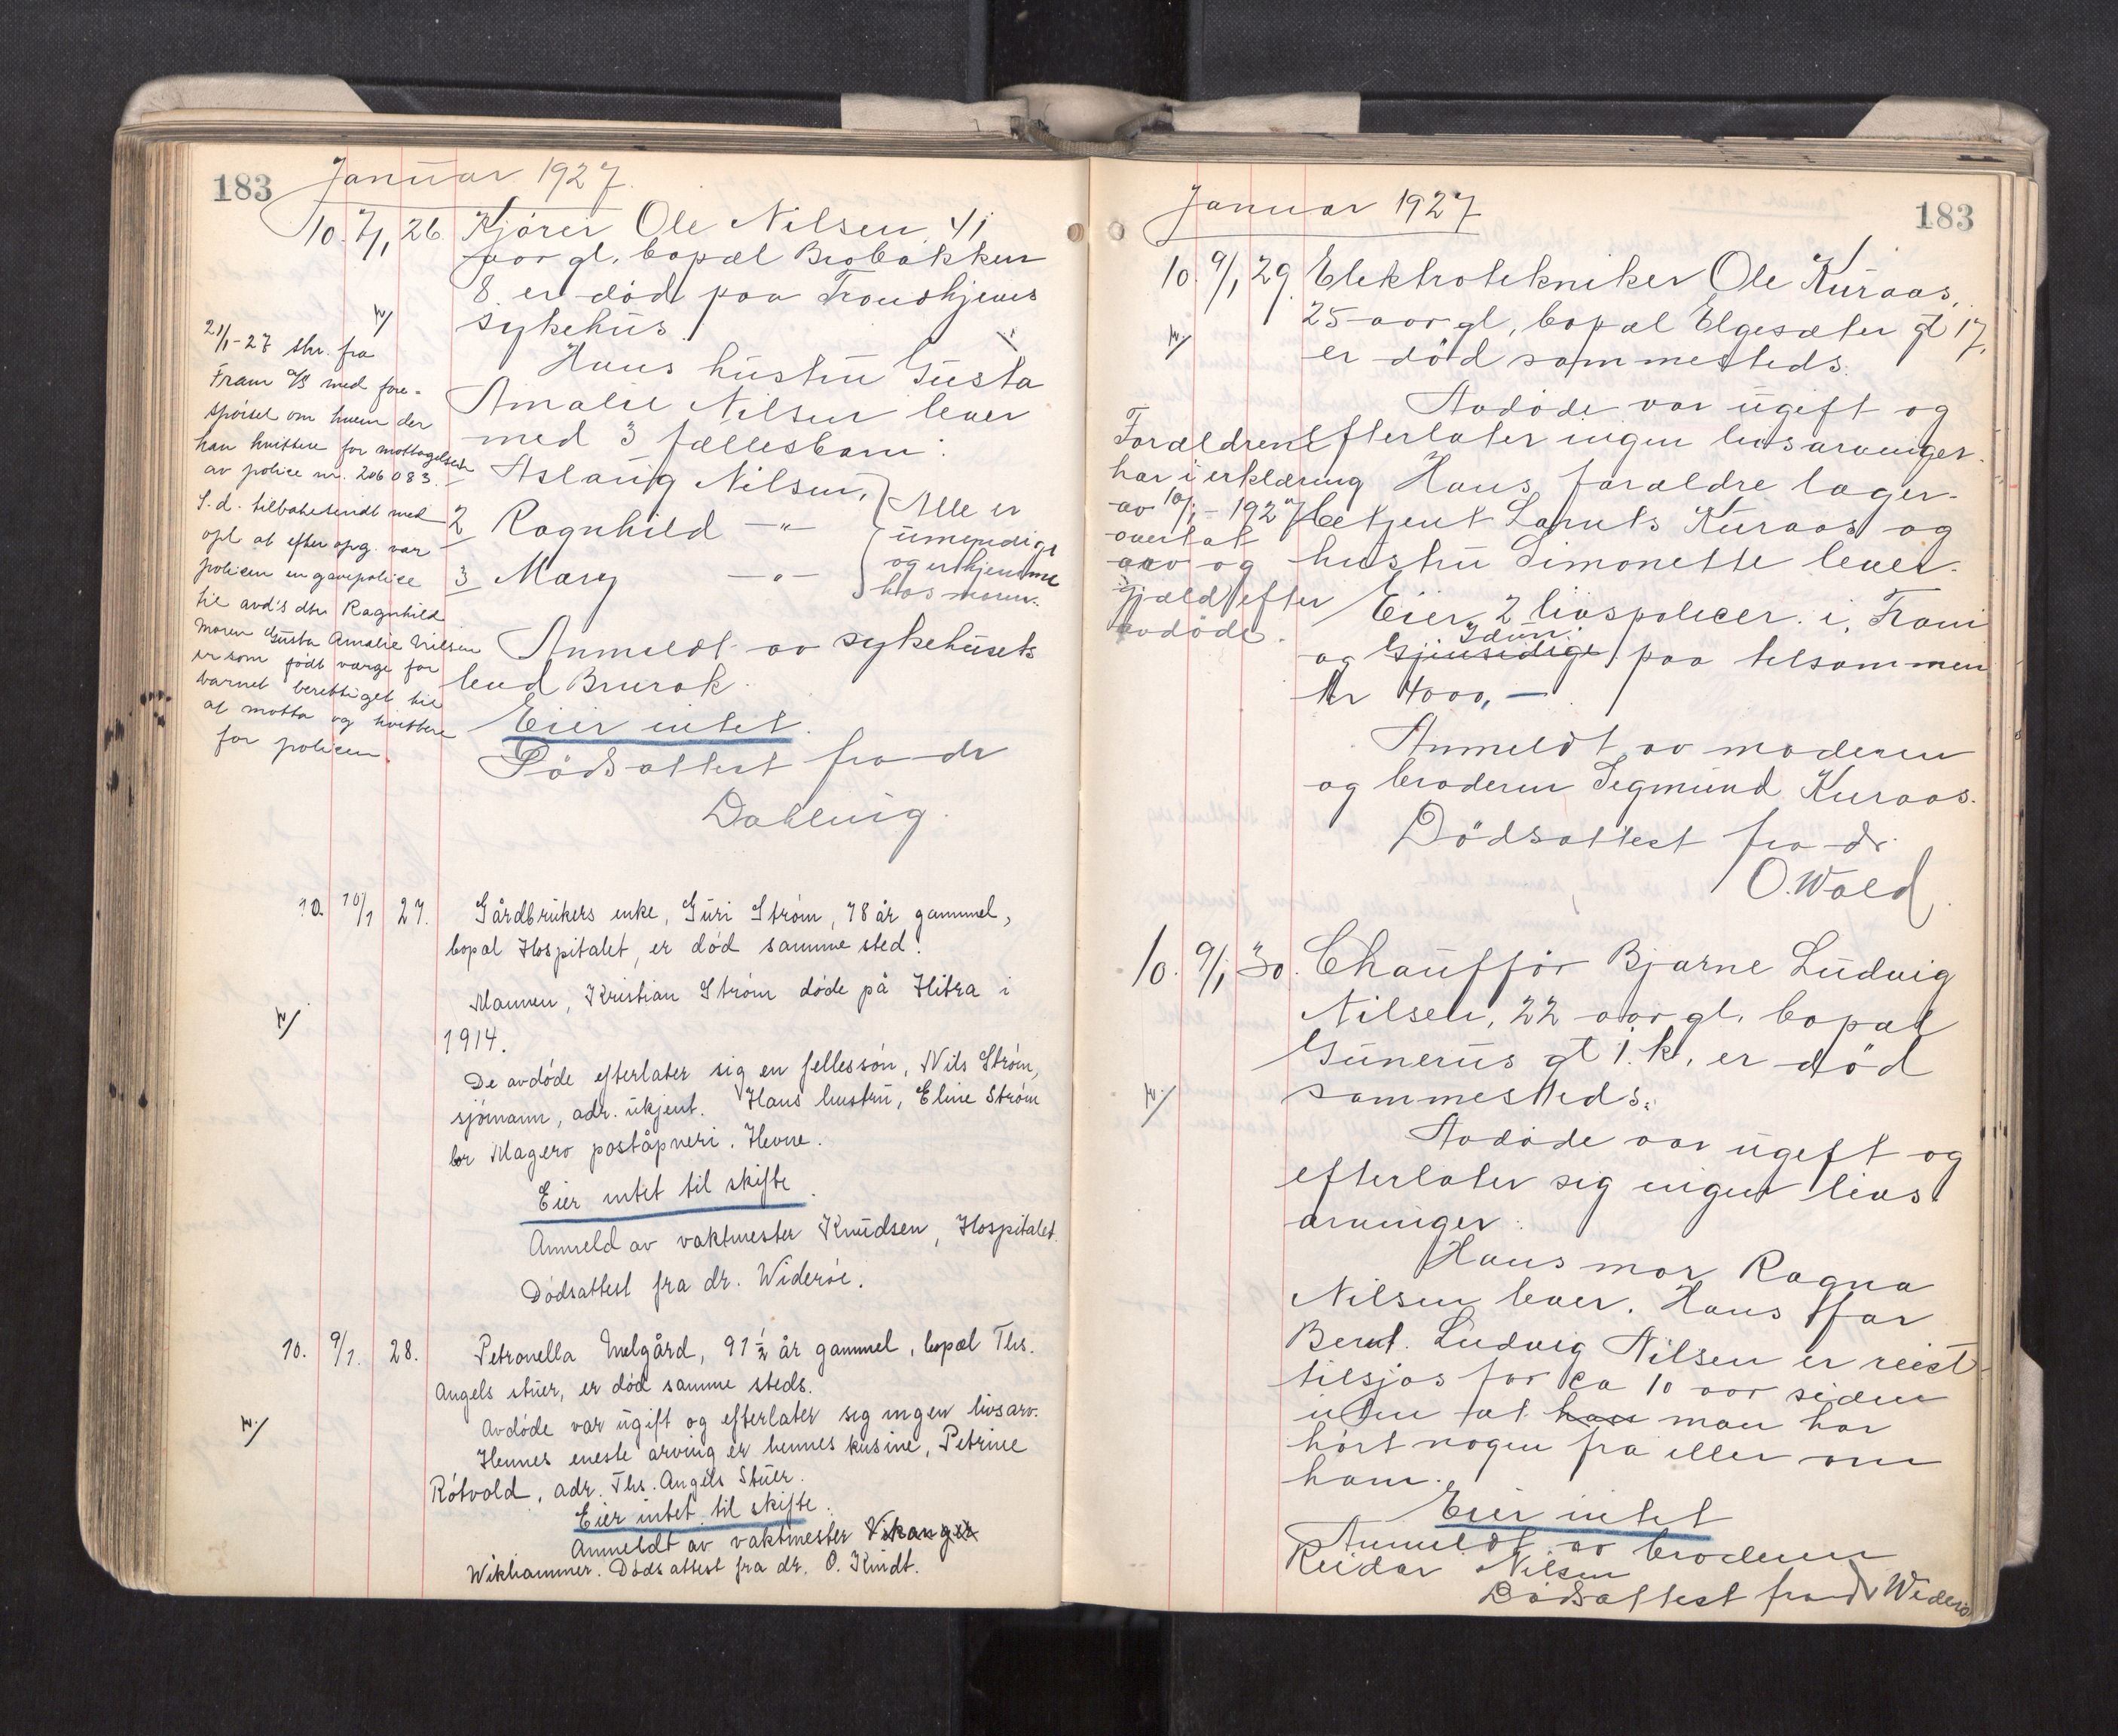 183
Januar 1927.
10. 7/1 26 Kjører Ole Nilsen, 41
aar gl. bopæl Brobakken
8. er död paa Trondhjems
sykehus.
Hans hustru Gusta
Amalie Nilsen lever
med 3 fællesbarn:
1 Aslaug Nilsen,
2 Ragnhild —"—
3 Mary —"—
Alle er
umyndige
og er hjemme
hos moren.
Anmeldt av sykehusets
bud Brurok.
Eier intet.
Dödsattest fra dr
Dahlvig.
21/1-27 skr. fra
Fram A/S med fore-
spörsel om hvem der
kan kvittere for mottagelsen
av police nr. 206083.
S.d. tilbakesendt med
opl. at efter opg. var
policen en gavepolice
til avd's dtr Ragnhild
Moren Gusta Amalie Nilsen
er som födt værge for
barnet berettiget til
at motta og kvittere
for policen.
10. 10/1 27. Gårdbrukers enke, Guri Ström, 78 år gammel,
bopæl Hospitalet, er död samme sted.
Mannen, Kristian Ström döde på Hitra i
1914.
De avdöde efterlater sig en fellessön, Nils Ström,
sjömann, adr. ukjent. Hans hustru, Eline Ström
bor Magerö poståpneri. Hevne.
Eier intet til skifte.
Anmeld av vaktmester Knudsen, Hospitalet.
Dödsattest fra dr. Wideröe.
10. 9/1. 28. Petronella Melgård, 91 ½ år gammel, bopæl Ths.
Angels stuer, er död samme steds.
Avdöde var ugift og efterlater sig ingen livsarv.
Hennes eneste arving er hennes kusine, Petrine
Rötvold, adr. Ths. Angels Stuer.
Eier intet til skifte.
Anmeldt av vaktmester Vikanger
Wikhammer. Dödsattest fra dr. O. Kindt.
Januar 1927
183
10. 9/1 29. Elektrotekniker Ole Kuraas,
25 aar gl, bopæl Elgesæter gt 17,
er död sammesteds.
Avdöde var ugift og
efterlater ingen livsarvinger.
Hans forældre lager-
betjent Laurits Kuraas og
hustru Simonette lever.
Eier 2 livspolicer i Fram
Idun
og Gjensidige paa tilsammen
kr 4000,—
Anmeldt av moderen
og broderen Sigmund Kuraas.
Dödsattest fra dr.
O. Wold.
Forældrene
har i erklæring
av 10/1-1927
overtat
arv og
gjæld efter
avdöde.
10. 9/1 30. Chaufför Bjarne Ludvig
Nilsen, 22 aar gl. bopæl
Gunerus gt 1. k, er död
sammesteds.
Avdöde var ugift og
efterlater sig ingen livs
arvinger.
Hans mor Ragna
Nilsen lever. Hans far
Bernt Ludvig Nilsen er reist
tilsjøs for ca 10 aar siden
uten at han man har
hört nogen fra eller om
ham.
Eier intet
Anmeldt av broderen
Reidar Nilsen
Dödsattest fra dr Wideröe